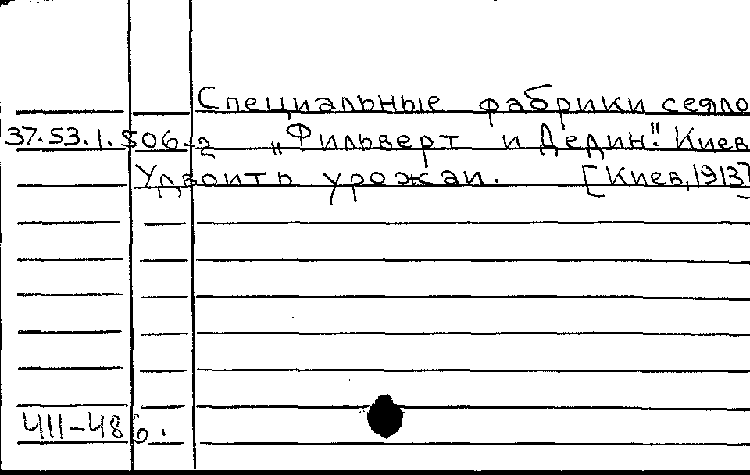 Специальные фабрики сеяло
37.53.1.506.2 „Фильверт и Дедин." Киев
Удвоить урожаи. [Киев, 1913]
411-48б.